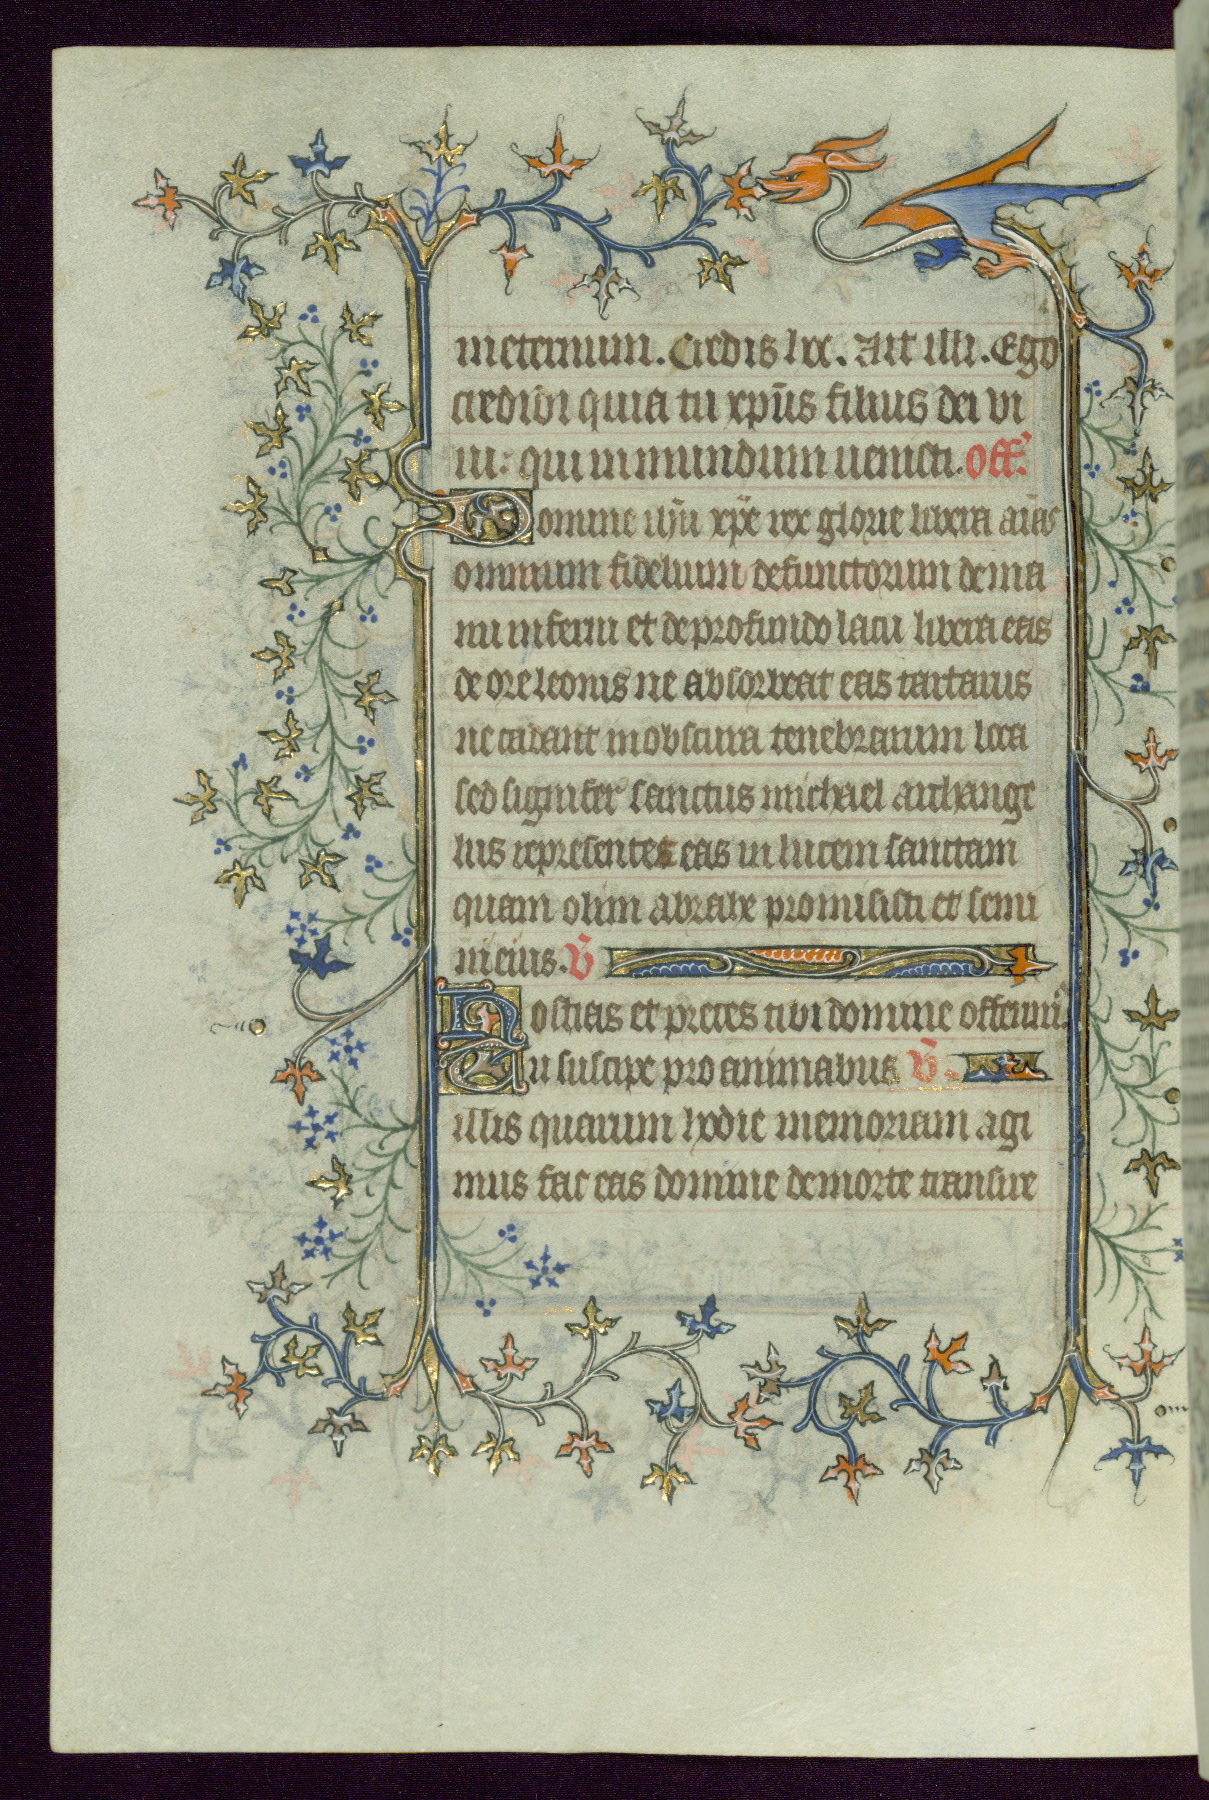 ineternum. Credis hoc. Ait illi. Ego
credidi quia tu xp̄us filius dei vi
ui: qui inmundum uenisti. off̄.
Domine ih̄u xp̄e rex glorie libera aīas
omnium fidelium defunctorum dema
nu inferni et deprofundo lacu libera eas
de ore leonis ne absorbeat eas tartarus
ne cadant inobscura tenebrarum loca
sed signifer sanctus michael archange
lus representet eas in lucem sanctam
quam olim abrahe promisisti et semi
ni eius. V̄
Hostias et preces tibi domine offerim᷒
Tu suscipe pro animabus V̄.
illis quarum hodie memoriam agi
mus fac eas domine demorte transire